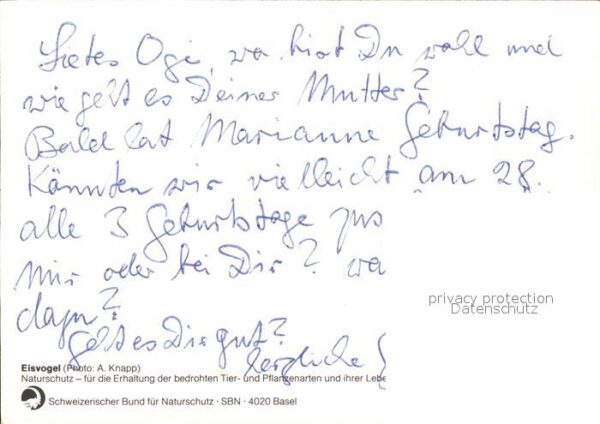 Liebes Ogi, wo bist Du wohl und
wie geht es Deiner Mutter?
Bald hat Marianne Geburtstag.
Könnten wir vielleicht am 28.
alle 3 Geburtstage
mir oder bei Dir?
dazu?
Geht es Dir gut?
herzliche
privacy protection
Datenschutz
Eisvogel (Photo: A. Knapp)
Naturschutz – für die Erhaltung der bedrohten Tier- und Pflanzenarten und ihrer Lebe
Schweizerischer Bund für Naturschutz · SBN · 4020 Basel